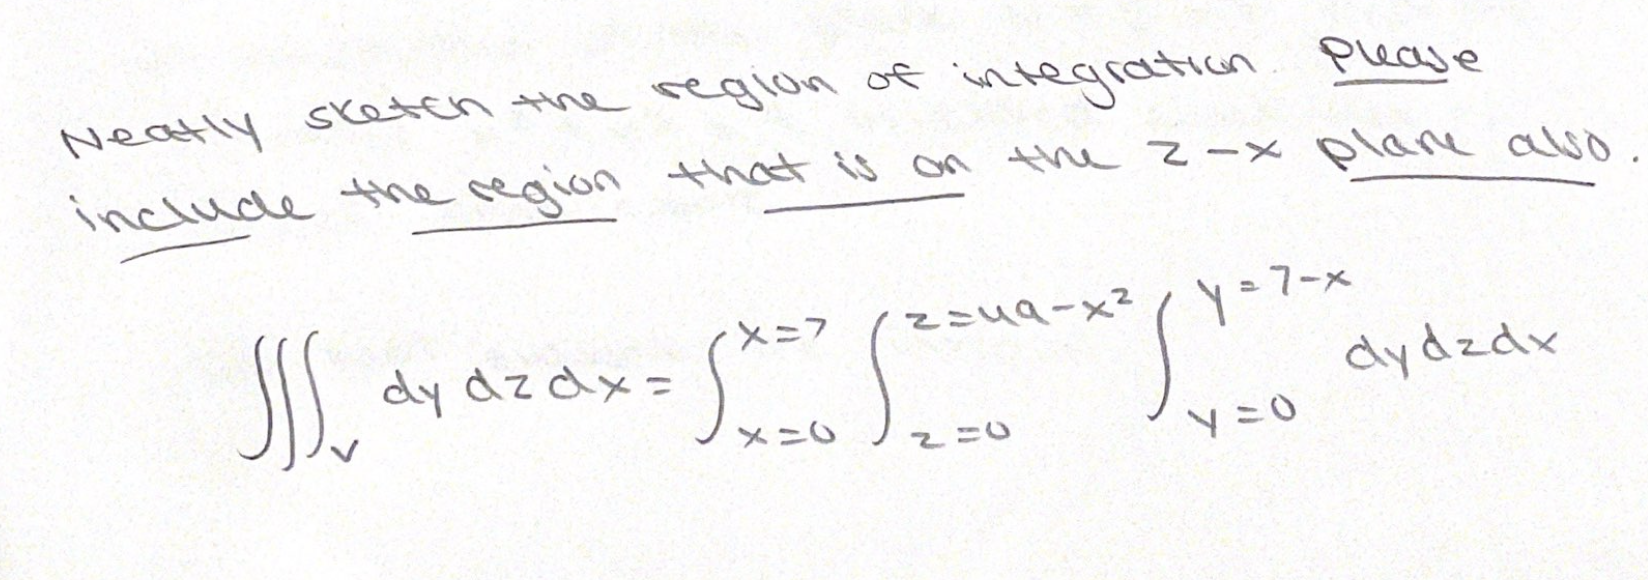 Neatly sketch the region of integration Please
include the region that is on the z-x plane also.
∭_V dy dz dx = ∫_{x=0}^{x=7} ∫_{z=0}^{z=49-x²} ∫_{y=0}^{y=7-x} dy dz dx